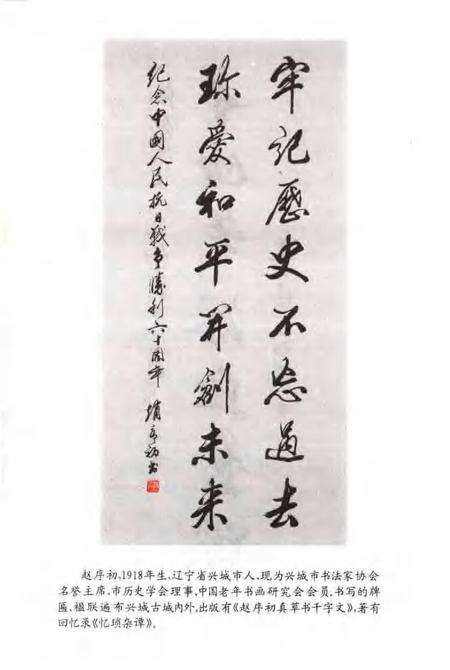 牢记歷史不忘過去
珎爱和平開創未来
纪念中國人民抗日战争勝利六十周年 趙序初书
赵序初,1918年生,辽宁省兴城市人,现为兴城市书法家协会
名誉主席,市历史学会理事,中国老年书画研究会会员,书写的牌
匾、楹联遍布兴城古城内外,出版有《赵序初真草书千字文》,著有
回忆录《忆琐杂谭》。